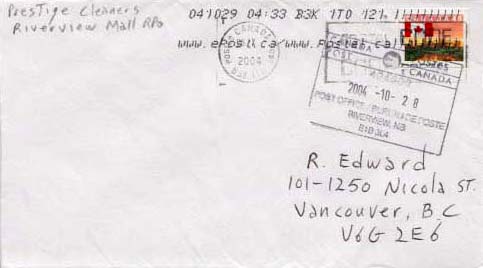 Prestige Cleaners
Riverview Mall RPO
041029 04:33 B3K 1T0 121
www.epost.ca/www.postes
CANADA
2004
CANADA
2004 -10- 28
POST OFFICE / BUREAU DE POSTE
RIVERVIEW, NB
E1B 3L4
R. Edward
101-1250 Nicola St.
Vancouver, B.C
V6G 2E6